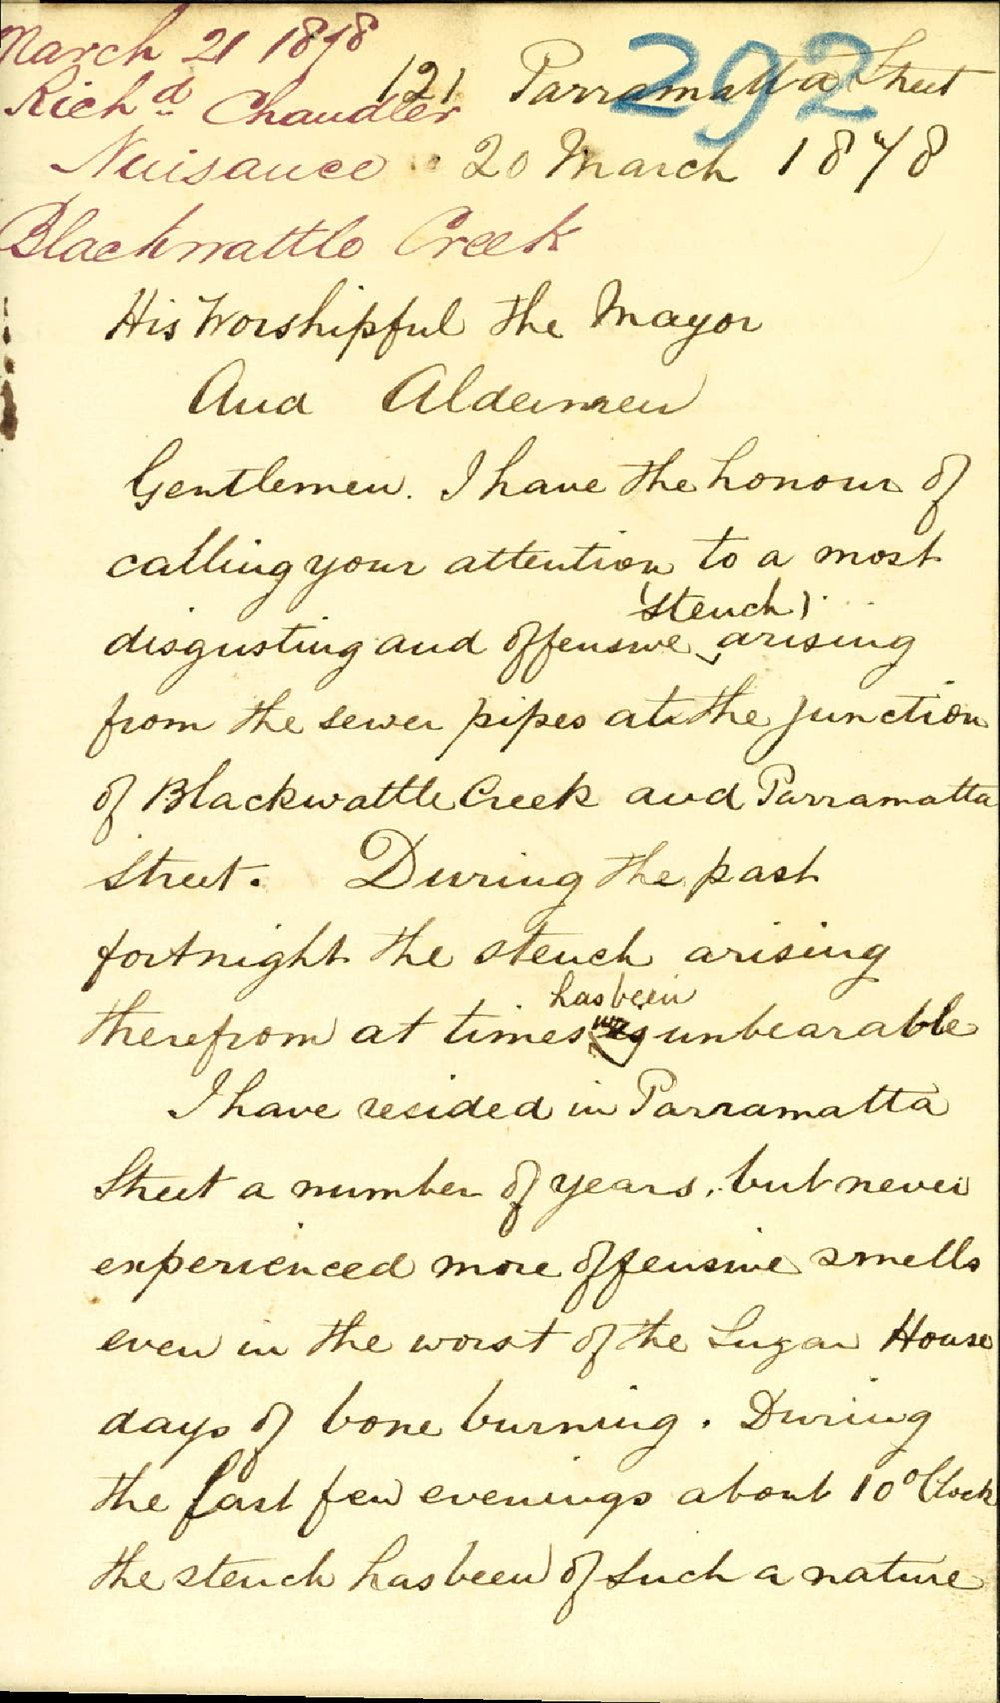 March 21 1878
Richd Chandler
Nuisance
Blackwattle Creek
292
121 Parramatta Street
20 March 1878
His Worshipful the Mayor
And Aldermen
Gentlemen. I have the honour of
calling your attention to a most
disgusting and offensive (stench) arising
from the sewer pipes at the junction
of Blackwattle Creek and Parramatta
Street. During the past
fortnight the stench arising
therefrom at times has been unbearable
I have resided in Parramatta
Street a number of years, but never
experienced more offensive smells
even in the worst of the Sugar House
days of bone burning. During
the last few evenings about 10 o'Clock
the stench has been of such a nature